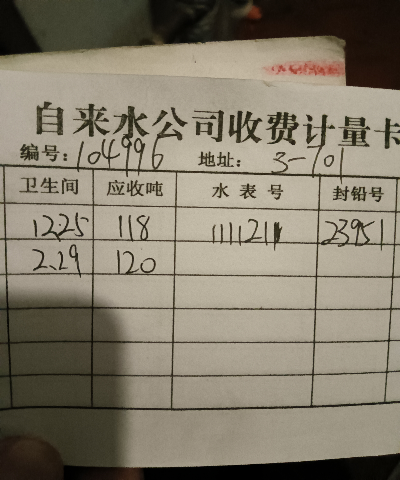 自来水公司收费计量卡
编号：104996 地址：3-701
卫生间 应收吨 水表号 封铅号
12.25 118 11112111 23951
2.29 120